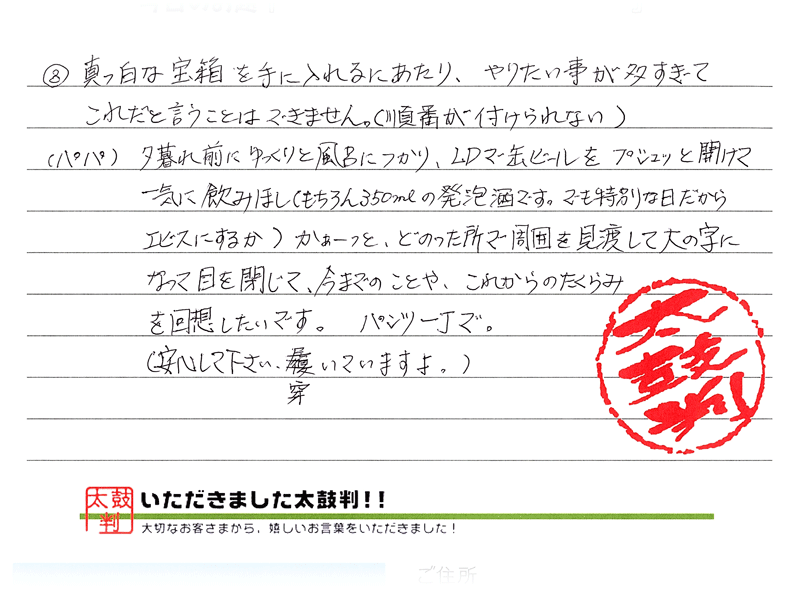 ⑧ 真っ白な宝箱を手に入れるにあたり、やりたい事が多すぎて
これだと言うことはできません。(順番が付けられない)
(パパ) 夕暮れ前にゆっくりと風呂につかり、LDで缶ビールをプシュッと開けて
一気に飲みほし(もちろん350mlの発泡酒です。でも特別な日だから
エビスにするか)かぁーっと、どのった所で周囲を見渡して大の字に
なって目を閉じて、今までのことや、これからのたくらみ
を回想したいです。 パンツ一丁で。
(安心して下さい、履いていますよ。)
穿
太鼓判
太鼓判
いただきました太鼓判!!
大切なお客さまから、嬉しいお言葉をいただきました!
ご住所